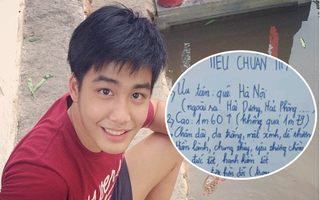 TIÊU CHUẨN
1, Ưu tiên: quê Hà Nội
(ngoài ra: Hải Dương, Hải Phòng...
2, Cao: 1m60 ↑ (không quá 1m79)
Chân dài, da trắng, mắt xinh, dễ thương
hiền lành, chung thủy, yêu thương chồng
đức tốt, hạnh kiểm tốt